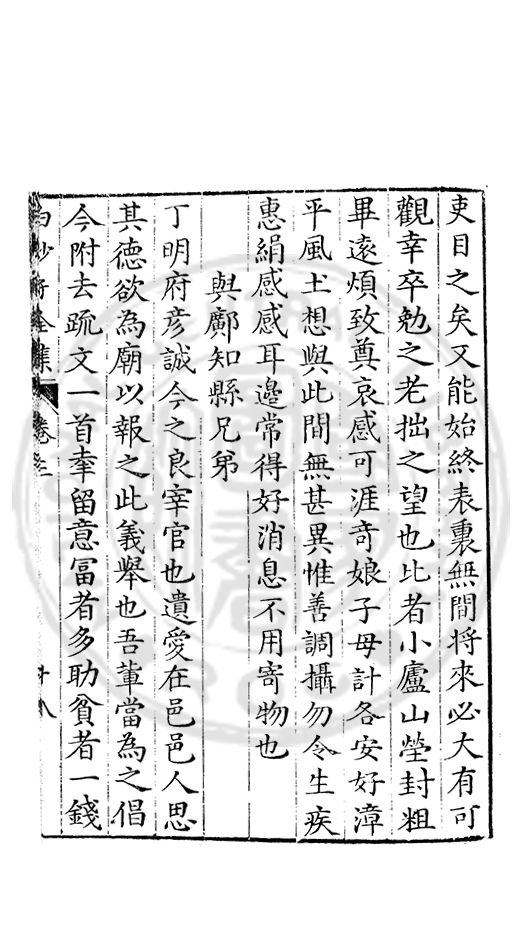 吏目之矣又能始終表裏無間將來必大有可
觀幸卒勉之老拙之望也比者小廬山塋封粗
畢遠煩致奠哀感可涯奇娘子母計各安好漳
平風土想與此間無甚異惟善調攝勿令生疾
惠絹感感耳邉常得好消息不用寄物也
與鄺知縣兄弟
丁明府彦誠今之良宰官也遺愛在邑邑人思
其德欲為廟以報之此義舉也吾輩當為之倡
今附去疏文一首幸留意冨者多助貧者一錢
白沙子全集 卷三 十八